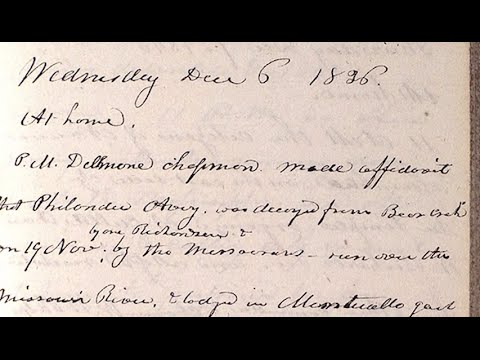 Wednesday Dec 6 1836.
At home.
P.M. Delmone chapman made affidavit
that Philander Avery, was decoyed from Bear Creek
by one Richardson &
on 19 Nov. by the Missourians – run over the
Missouri River, & lodged in Monticello gaol